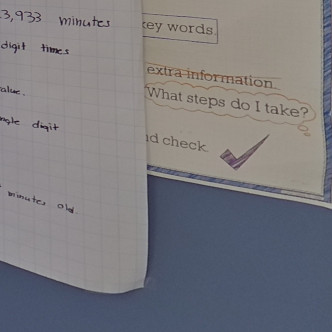 3,933 minutes
digit times
value.
digit
minutes old.
key words.
extra information
What steps do I take?
nd check.